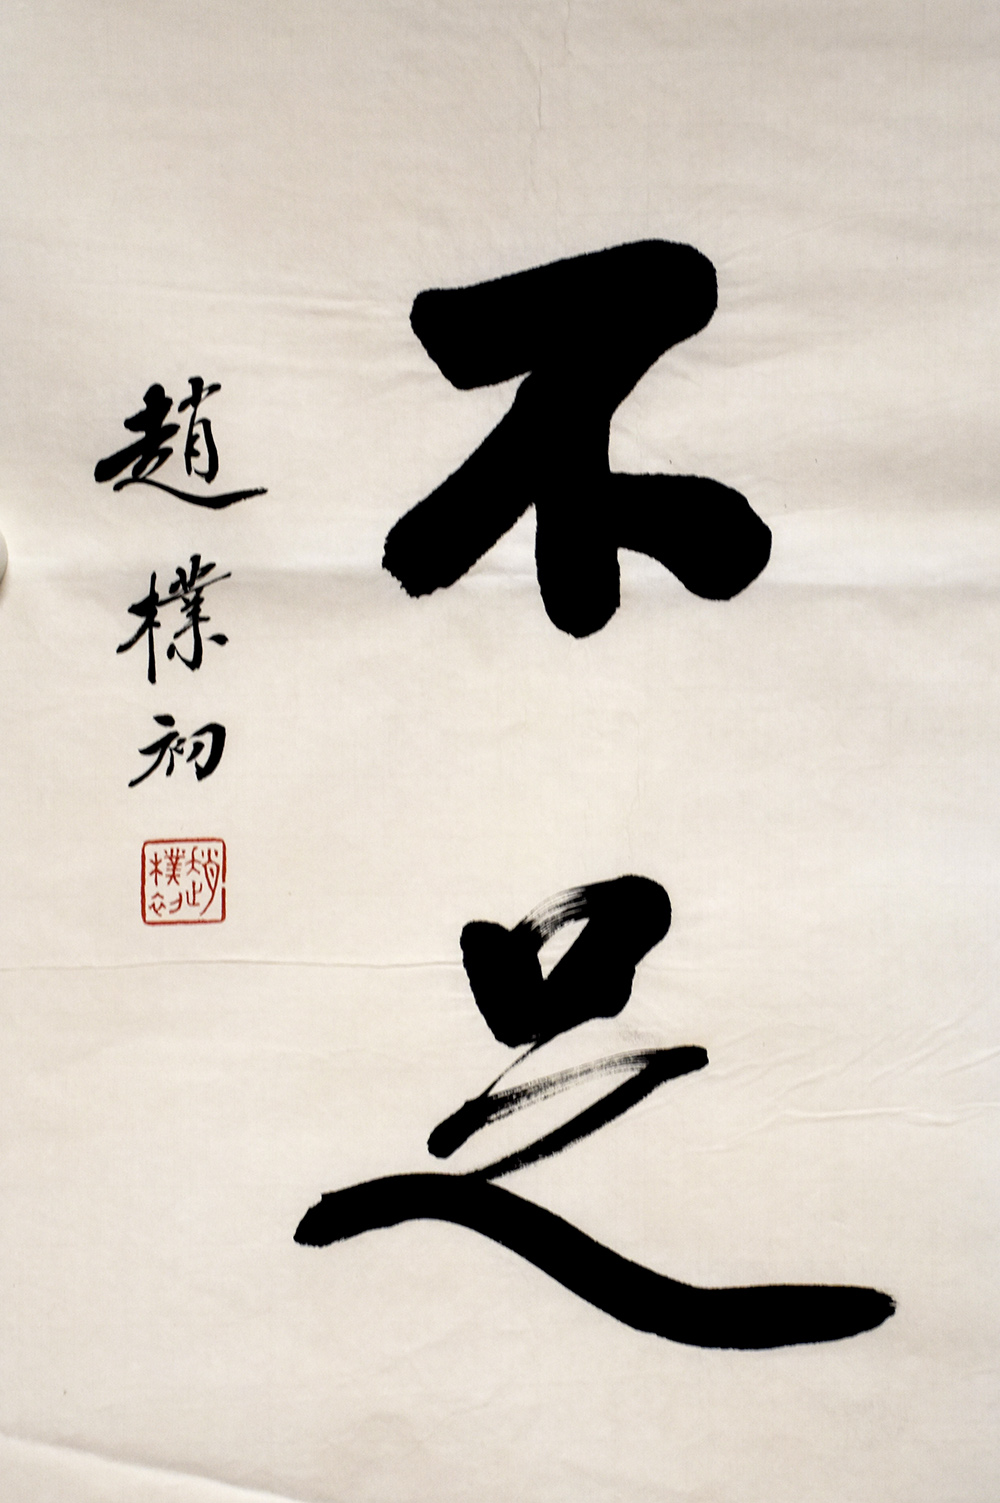 不足
趙樸初
趙樸初